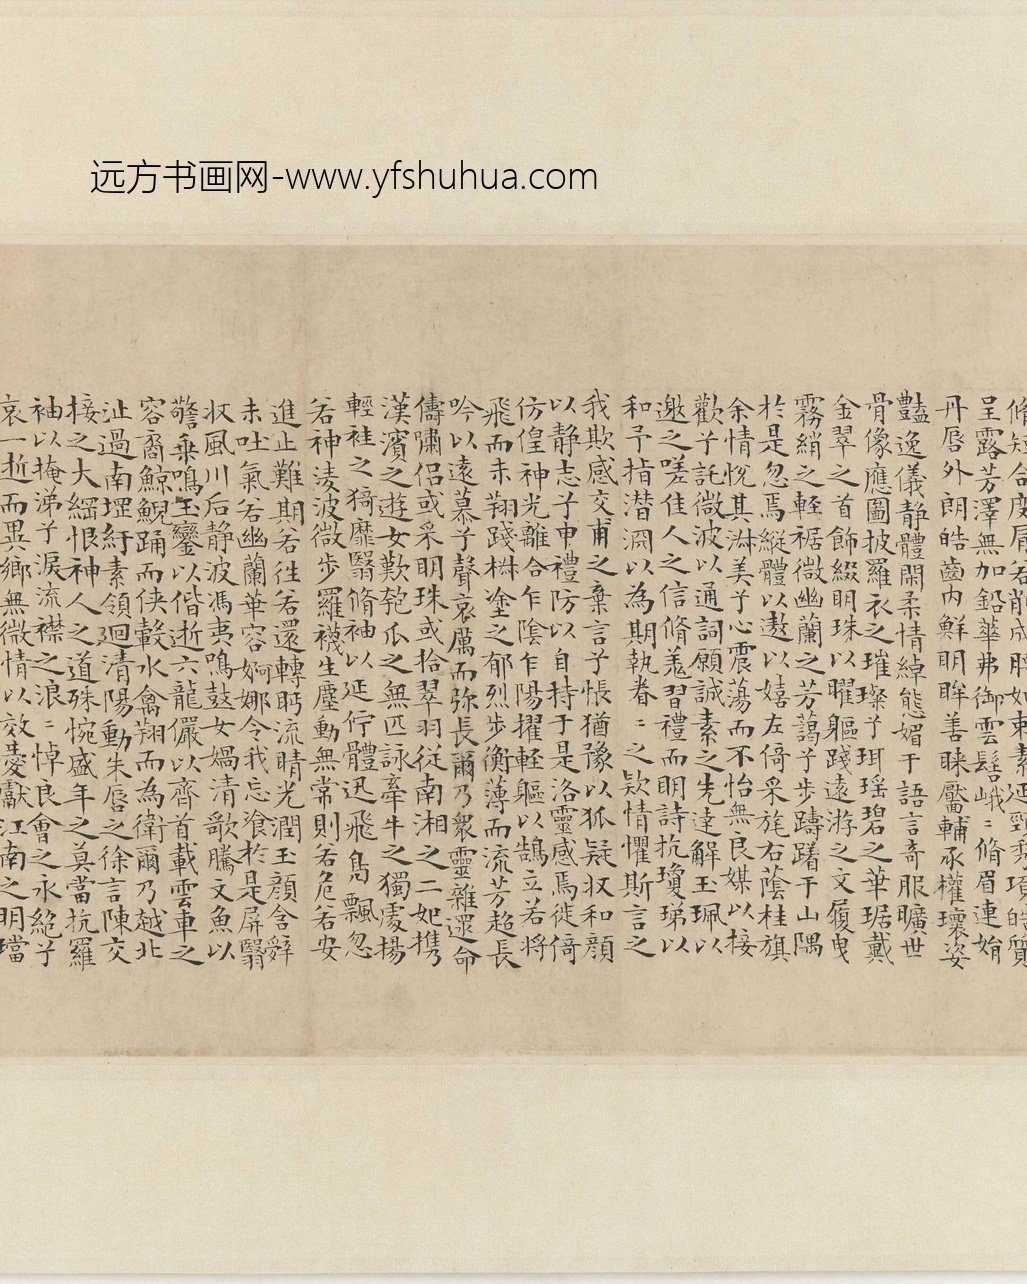 远方书画网-www.yfshuhua.com
脩短合度肩若削成腰如束素延頸秀項皓質
呈露芳澤無加鉛華弗御雲髻峨〻脩眉連娟
丹唇外朗皓齒內鮮明眸善睞靨輔承權瓌姿
豔逸儀靜體閑柔情綽態媚于語言奇服曠世
骨像應圖披羅衣之璀璨子珥瑶碧之華琚戴
金翠之首飾綴明珠以曜軀踐遠游之文履曳
霧綃之輕裾微幽蘭之芳藹子步躊躇于山隅
於是忽焉縱體以遨以嬉左倚采旄右蔭桂旗
余情悅其淋美子心震蕩而不怡無良媒以接
歡子託微波以通詞願誠素之先達解玉珮以
邀之嗟佳人之信脩羗習禮而明詩抗瓊珶以
和予指潛淵以為期執眷〻之欵情懼斯言之
我欺感交甫之棄言子悵猶豫以狐疑収和顔
以静志子申禮防以自持于是洛靈感焉徙倚
仿偟神光離合乍陰乍陽擢輕軀以鵠立若將
飛而未翔踐椒塗之郁烈步衡薄而流芳超長
吟以遠慕子聲哀厲而弥長爾乃衆靈雜遝命
儔嘯侣或采明珠或拾翠羽従南湘之二妃携
漢濱之遊女歎匏瓜之無匹詠牽牛之獨處揚
輕袿之猗靡翳脩袖以延佇體迅飛鳬飄忽
若神淩波微步羅襪生塵動無常則若危若安
進止難期若徃若還轉眄流睛光潤玉顔含辝
未吐氣若幽蘭華容婀娜令我忘飡於是屏翳
収風川后静波馮夷鳴鼓女媧清歌騰文魚以
警乗鳴玉鑾以偕逝六龍儼以齊首載雲車之
容裔鯨鯢踊而俠轂水禽翔而為衛爾乃越北
沚過南㟁紆素領廻清陽動朱唇之徐言陳交
接之大綱恨神人之道殊惋盛年之莫當抗羅
袖以掩涕子淚流襟之浪〻悼良會之永絶子
哀一逝而異鄉無微情以效愛獻江南之明璫